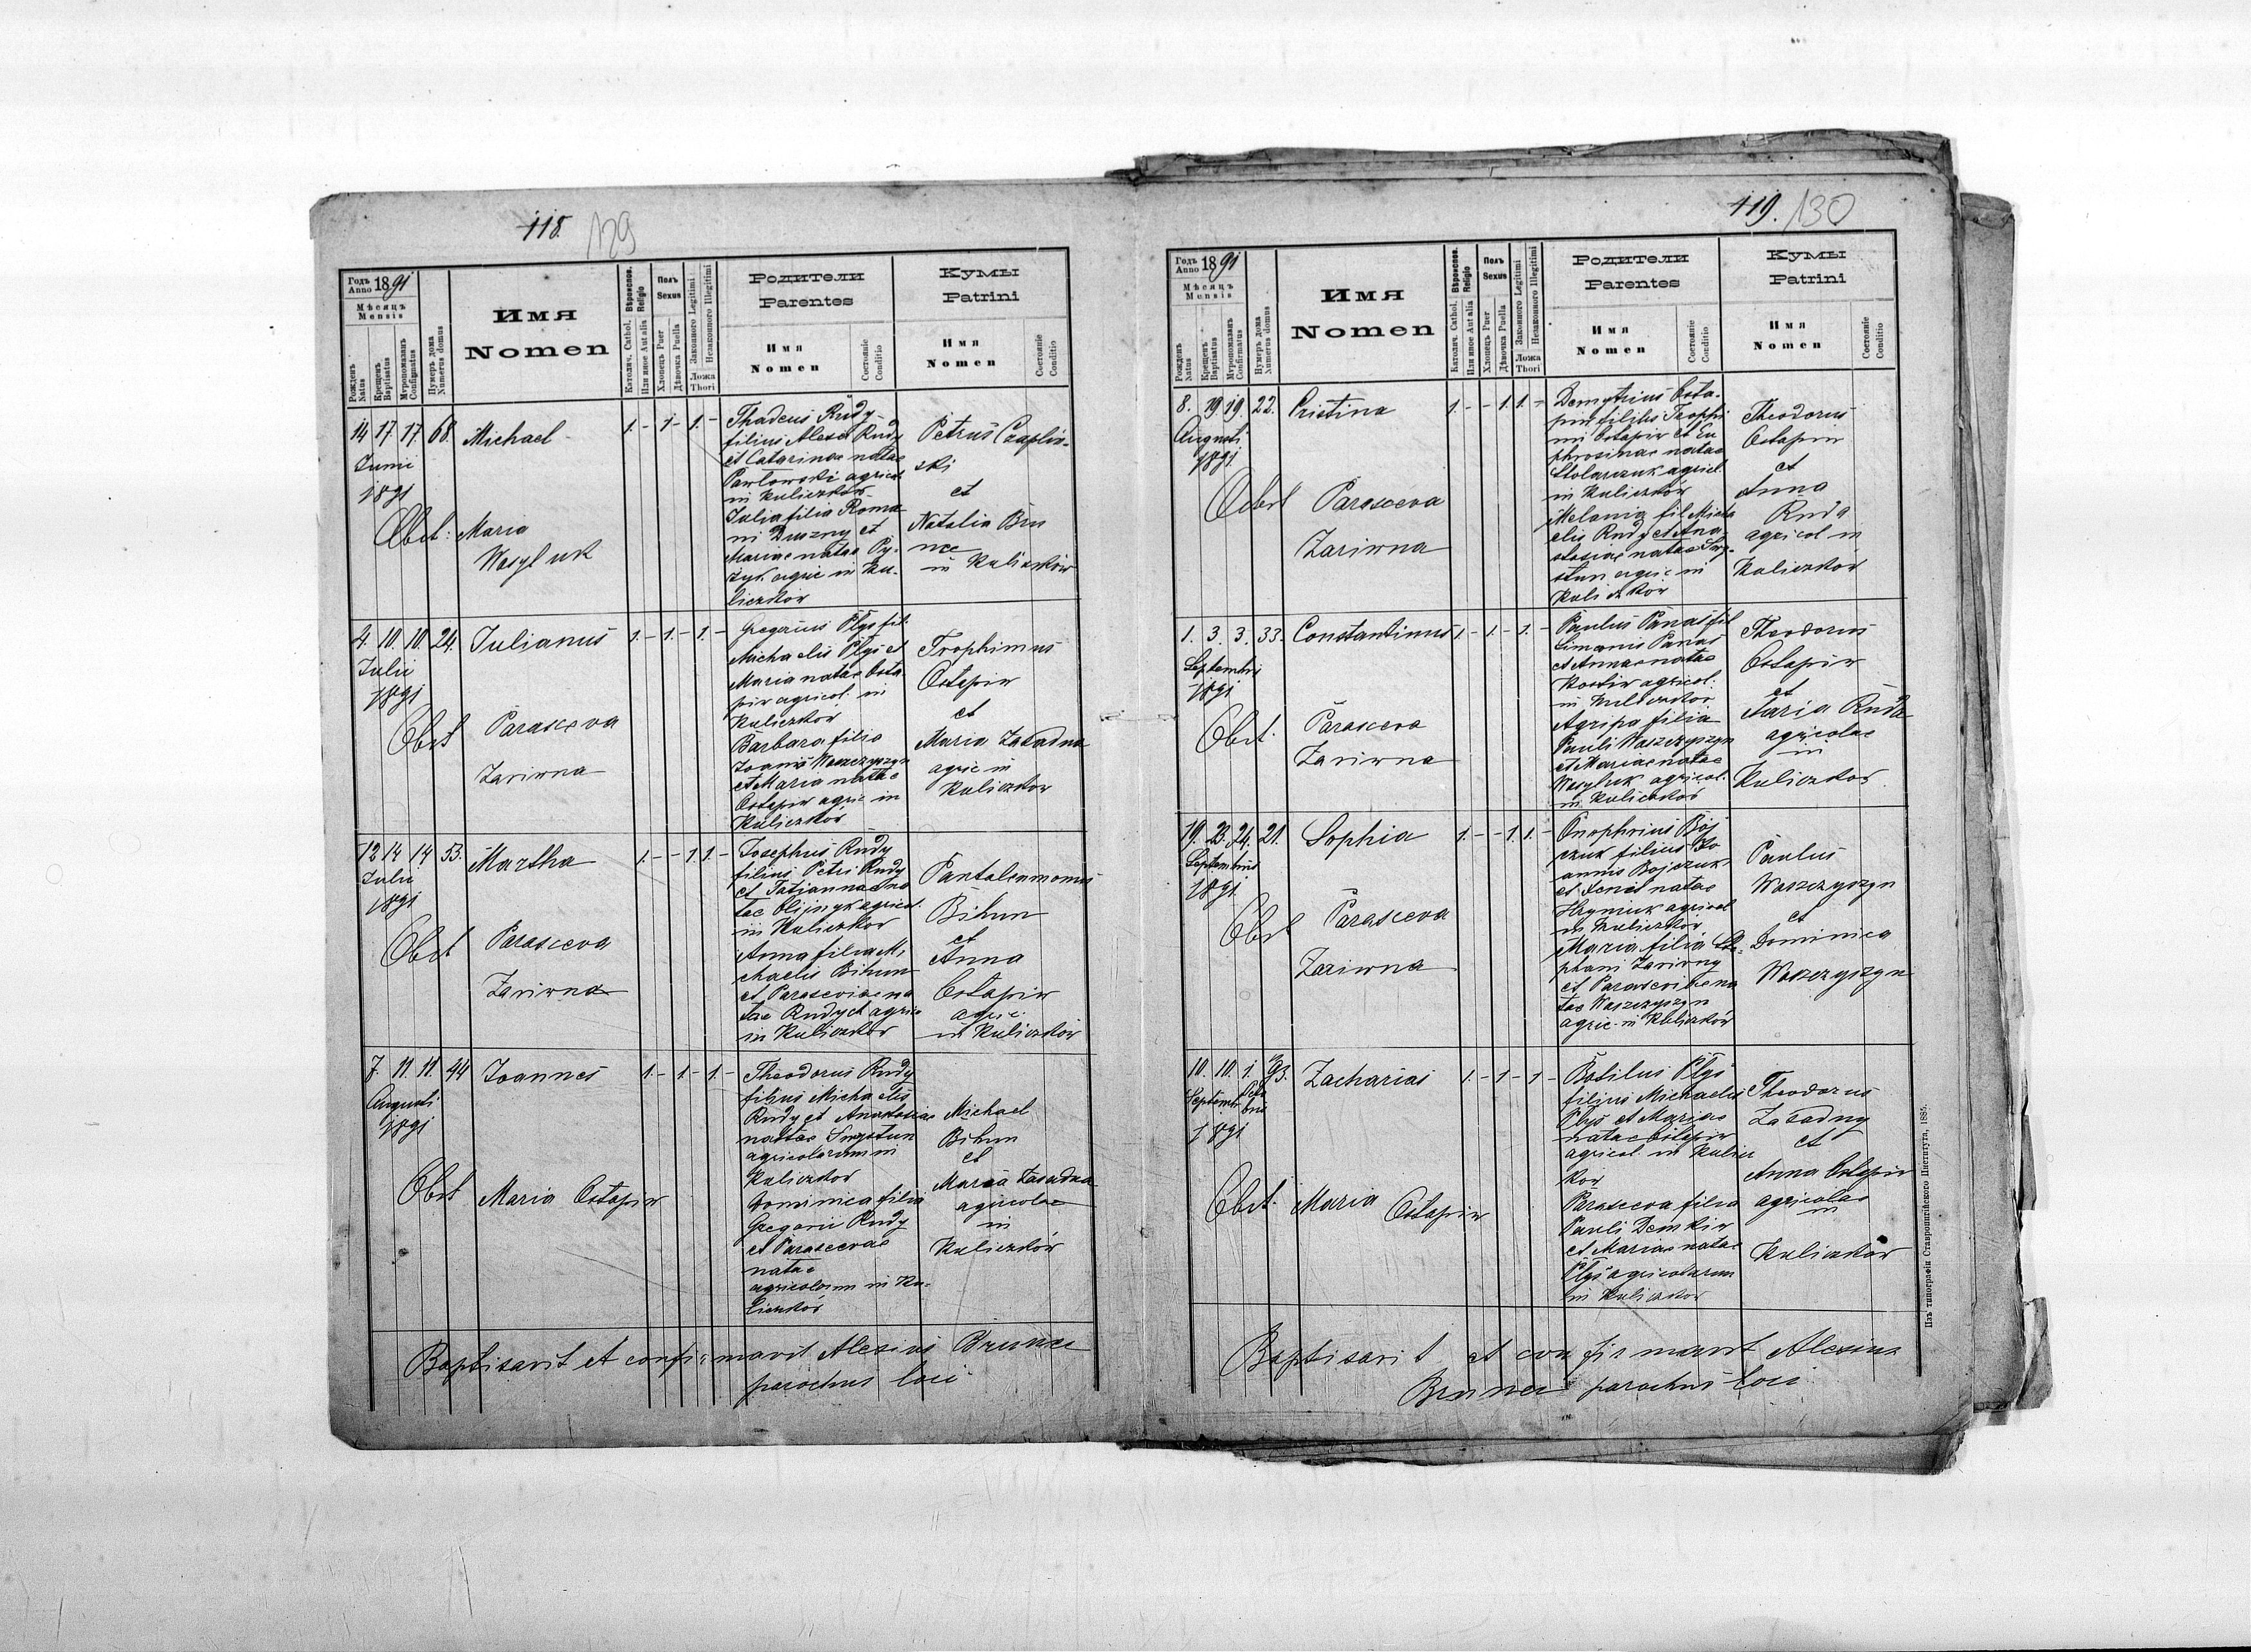 118. 129
Годъ Anno 1891
Мѣсяцъ Mensis
Рожденъ Natus
Крещенъ Baptisatus
Мѵропомазанъ Confirmatus
Нумеръ дома Numerus domus
Имя
Nomen
Вѣроиспов. Religio
Католич. Cathol.
Или иное Aut alia
Полъ Sexus
Хлопецъ Puer
Дѣвочка Puella
Законного Legitimi
Незаконного Illegitimi
Ложа Thori
Родители
Parentes
Имя
Nomen
Состояніе Conditio
Кумы
Patrini
Имя
Nomen
Состояніе Conditio
14 17 17 68. Michael 1. - 1 - 1. -
Junii
1891
Obst: Maria
Wasyluk
Thadeus Rudy
filius Alexii Rudy
et Catarinae natae
Pawlowski agricol.
in Kuliczków
Julia filia Roma
ni Duszny et
Mariae natae Py-
zyk agric in Ku-
liczków
Petrus Czaplin-
ski
et
Natalia Bru
nec
in Kuliczków
4. 10. 10. 24. Julianus 1. - 1. - 1. -
Julii
1891
Obst Parasceva
Zariwna
Gregorius Plys fil.
Michaelis Plys et
Maria natae Osta
piw agricol. in
Kuliczkow
Barbara filia
Joannis Waszczyszyn
et Maria natae
Ostapiw agric in
Kuliczków
Trophimus
Ostapiw
et
Maria Zasadna
agric in
Kuliczkow
12 14 14 53. Martha 1. - - 1. 1. -
Julii
1891
Obst Parasceva
Zariwna
Josephus Rudy
filius Petri Rudy
et Tatiannae na
tae Olijnyk agricol.
in Kuliczkow
Anna filia Mi
chaelis Bihun
et Parascevia na
tae Rudych agric
in Kuliczków
Pantaleamonus
Bihun
et
Anna
Ostapiw
agric.
in Kuliczków
7. 11. 11. 44 Joannes 1. - 1. - 1. -
Augusti
1891
Obst Maria Ostapiw
Theodorus Rudy
filius Michaelis
Rudy et Anastasiae
natae Smystun
agricolarum in
Kuliczkow
Dominica filia
Gregorii Rudy
et Parascevae
natae
agricolarum in Ku-
liczków
Michael
Bihun
et
Maria Zasadna
agricolae
in
Kuliczków
Baptisavit et confirmavit Alexius Brunec
parochus loci.
119. 130
Годъ Anno 1891
Мѣсяцъ Mensis
Рожденъ Natus
Крещенъ Baptisatus
Мѵропомазанъ Confirmatus
Нумеръ дома Numerus domus
Имя
Nomen
Вѣроиспов. Religio
Католич. Cathol.
Или иное Aut alia
Полъ Sexus
Хлопецъ Puer
Дѣвочка Puella
Законного Legitimi
Незаконного Illegitimi
Ложа Thori
Родители
Parentes
Имя
Nomen
Состояніе Conditio
Кумы
Patrini
Имя
Nomen
Состояніе Conditio
8. 19 19. 22. Cristina 1. - - 1. 1. -
Augusti
1891
Obst Parasceva
Zariwna
Demytrius Osta-
piw filius Trophi
mi Ostapiw et Eu
phrosinae natae
Stolarczuk agricol.
in Kuliczków
Melania fil Micha
elis Rudy et Ana
stasiae natae Smy-
stun agric in
Kuliczkow
Theodorus
Ostapiw
et
Anna
Ruda
agricol in
Kuliczków
1. 3. 3. 33. Constantinus 1. - 1. - 1. -
Septembris
1891
Obst. Parasceva
Zariwna
Paulus Panas fil
Simeonis Panas
et Annae natae
Kostiw agricol.
in Kuliczkow
Agripa filia
Pauli Waszczyszyn
et Mariae natae
Wasyluk agricol.
in Kuliczków
Theodorus
Ostapiw
et
Maria Ruda
agricolae
in
Kuliczków
19. 23. 24. 21. Sophia 1. - - 1. 1. -
Septembris
1891
Obst Parasceva
Zariwna
Onophrius Boj
czuk filius Jo
annis Bojczuk
et Xenia natae
Hryniuk agricol
in Kuliczków
Maria filia Ste-
phani Zariwny
et Parascevia na
tae Waszczyszyn
agric. in Kuliczków
Paulus
Waszczyszyn
et
Dominica
Waszczyszyn
10. 10. 1. 93. Zacharias 1. - 1 - 1 -
Septembr Octo
bris
1891
Obst. Maria Ostapiw
Basilius Plys
filius Michaelis
Plys et Mariae
natae Ostapiw
agricol. in Kulicz
kow
Parasceva filia
Pauli Demkiw
et Mariae natae
Plys agricolarum
in Kuliczkow
Theodorus
Zasadny
et
Anna Ostapiw
agricolae
in
Kuliczków
Baptisavit et confirmavit Alexius
Brunec parochus loci
Изъ типографіи Ставропигійского Института, 1885.